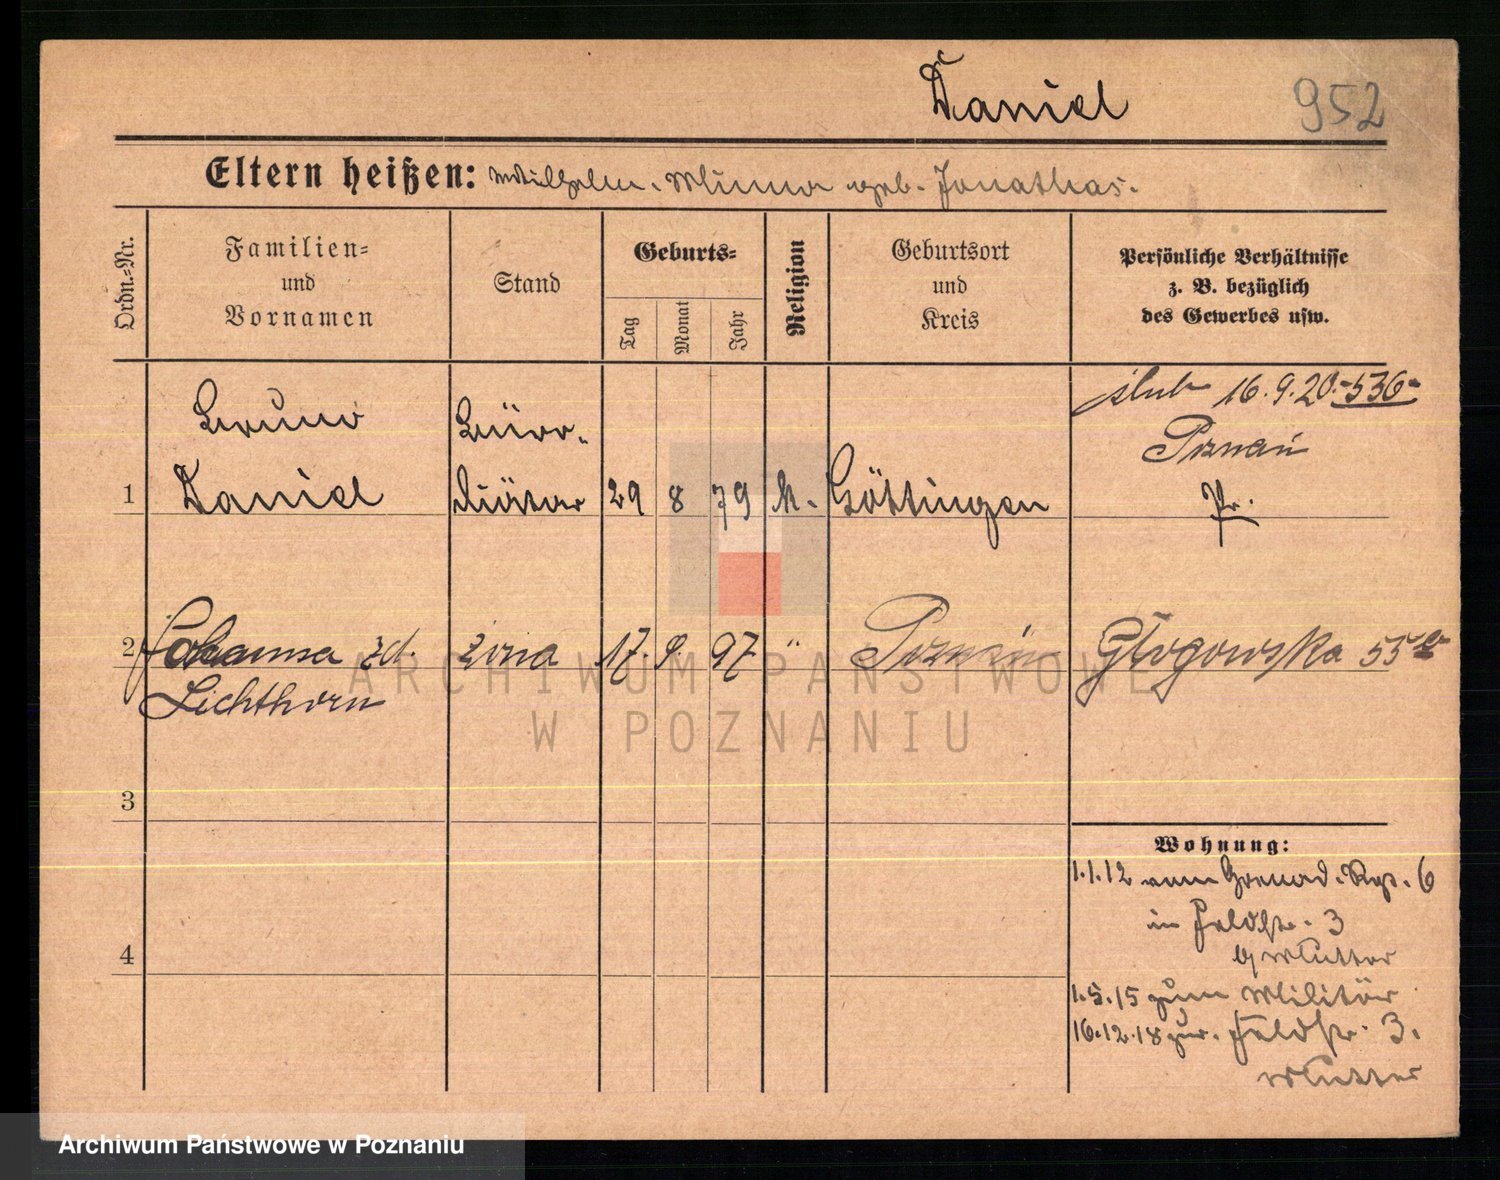 Daniel
952
Eltern heißen: Wilhelm. Minna geb. Jonathas.
Ordn.=Nr.
Familien=
und
Vornamen
Stand
Geburts=
Tag
Monat
Jahr
Religion
Geburtsort
und
Kreis
Persönliche Verhältnisse
z. B. bezüglich
des Gewerbes usw.
ślub 16.9.20.-536-
Poznań
Pr.
Bruno
Daniel
Büro-
diätar
1
29
8
79
Göttingen
2
Johanna zd.
Lichthorn
żona
17.
9.
97
"
Poznań
Głogowska 55
3
4
Wohnung:
1.1.12 vom Grenad. Rgt. 6
in Feldstr. 3
b/ Mutter
1.5.15 zum Militär
16.12.18 zur. Feldstr. 3.
Mutter
ARCHIWUM PAŃSTWOWE
W POZNANIU
Archiwum Państwowe w Poznaniu